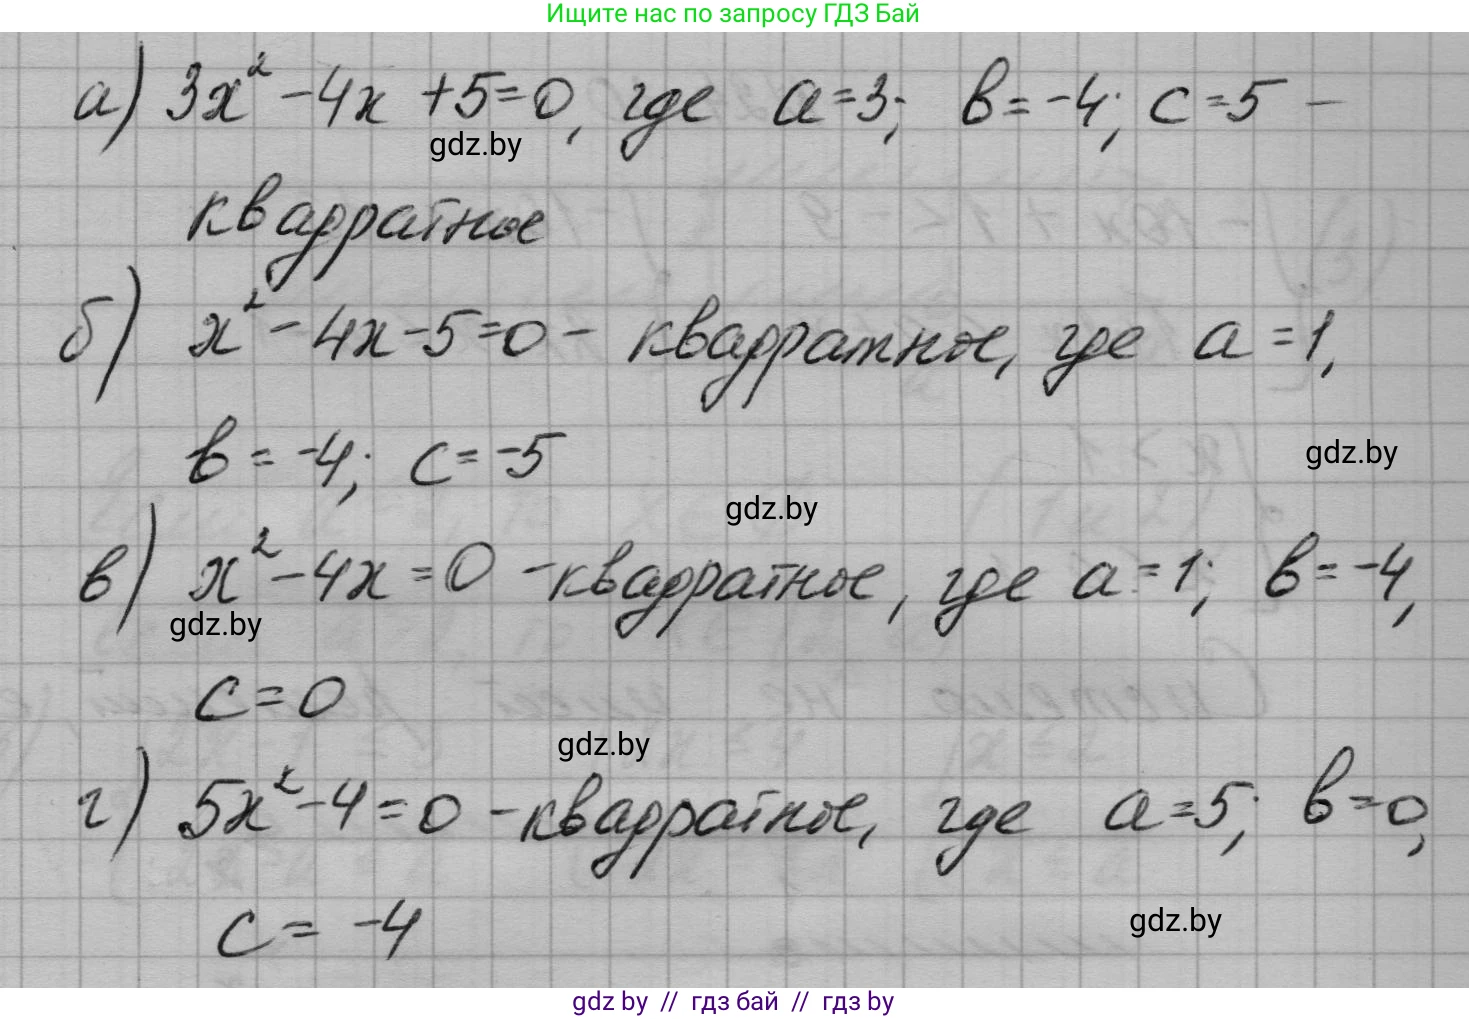 Ищите нас по запросу ГДЗ Бай
а) 3x² - 4x + 5 = 0, где a = 3; в = -4; c = 5 -
gdz.by
квадратное
б) x² - 4x - 5 = 0 - квадратное, где a = 1,
в = -4; c = -5
gdz.by
gdz.by
в) x² - 4x = 0 - квадратное, где a = 1; в = -4,
gdz.by
c = 0
gdz.by
г) 5x² - 4 = 0 - квадратное, где a = 5; в = 0,
c = -4
gdz.by
gdz by // гдз бай // гдз by